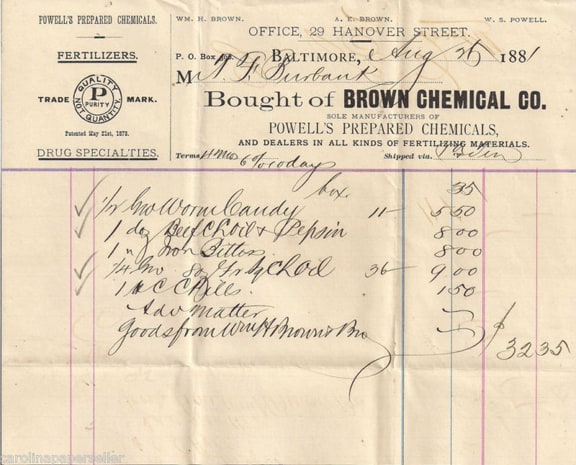 POWELL'S PREPARED CHEMICALS.
FERTILIZERS.
TRADE MARK.
QUALITY NOT QUANTITY
P
PURITY
Patented May 21st, 1872.
DRUG SPECIALTIES.
WM. H. BROWN. A. E. BROWN. W. S. POWELL.
OFFICE, 29 HANOVER STREET.
P. O. Box
BALTIMORE, Aug 26 1881
M Burbank
Bought of BROWN CHEMICAL CO.
SOLE MANUFACTURERS OF
POWELL'S PREPARED CHEMICALS,
AND DEALERS IN ALL KINDS OF FERTILIZING MATERIALS.
Terms 4 Mo 6% 10 days Shipped via.
box. 35
1/2 Gro Worm Candy 11- 5 50
1 doz Beef & Pepsin 8 00
1 " Iron Bitters 8 00
1/4 Gro 8oz 36- 9 00
1 C C Pills. 1 50
Adv Matter
Goods from Wm H Brown & Bro
$ 32 35
carolinapaperseller